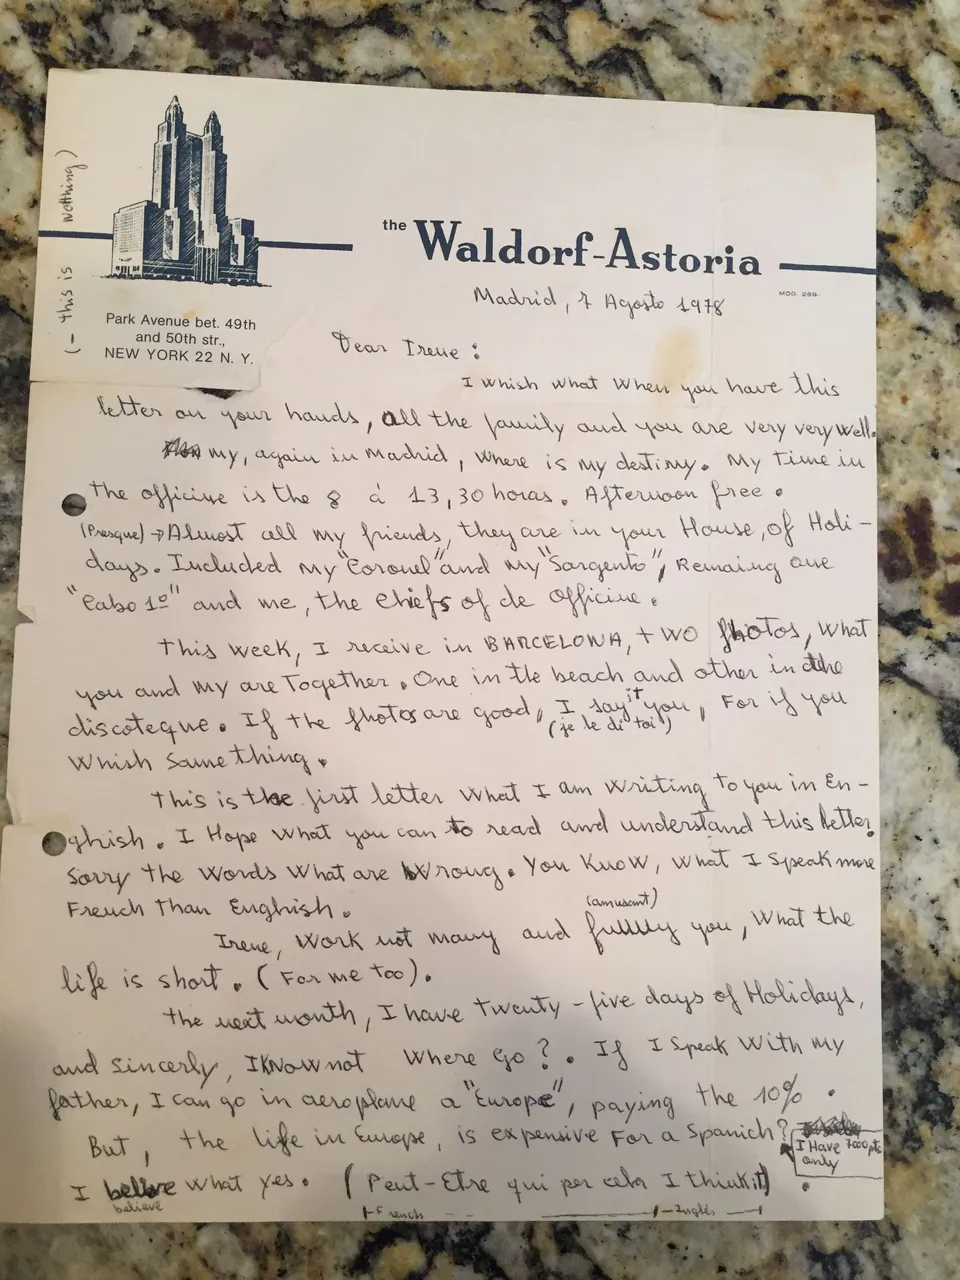 (- this is nothing)
the Waldorf-Astoria
MOD. 299-
Park Avenue bet. 49th
and 50th str.,
NEW YORK 22 N. Y.
Madrid, 7 Agosto 1978
Dear Irene :
I whish what when you have this
letter on your hands, all the family and you are very very well.
my, again in Madrid, where is my destiny. My time in
the officine is the 8 á 13,30 horas. Afternoon free.
(Presque) → Almost all my friends, they are in your House, of Holi-
days. Included my "Coronel" and my "Sargento", Remaing one
"Cabo 1º" and me, the chiefs of de officine.
This week, I receive in BARCELONA, two photos, what
you and my are Together. One in the beach and other in the
discoteque. If the photos are good, I say it you, For if you
(je le di toi)
whish something.
This is the first letter what I am writing to you in En-
ghish. I Hope what you can to read and understand this letter.
Sorry the words what are wrong. You know, what I speak more
French than Enghish.
(amusant)
Irene, work not many and fully you, what the
life is short. (For me too).
The next month, I have twenty-five days of Holidays,
and sincerly, I know not where go?. If I speak with my
father, I can go in aeroplane a "Europe", paying the 10% .
But, the life in Europe, is expensive For a Spanich?
I Have 7000 pts
only
I bellve what yes. (Peut-Etre qui per cela I think it) .
believe
|-French - - -|- Inglés -|